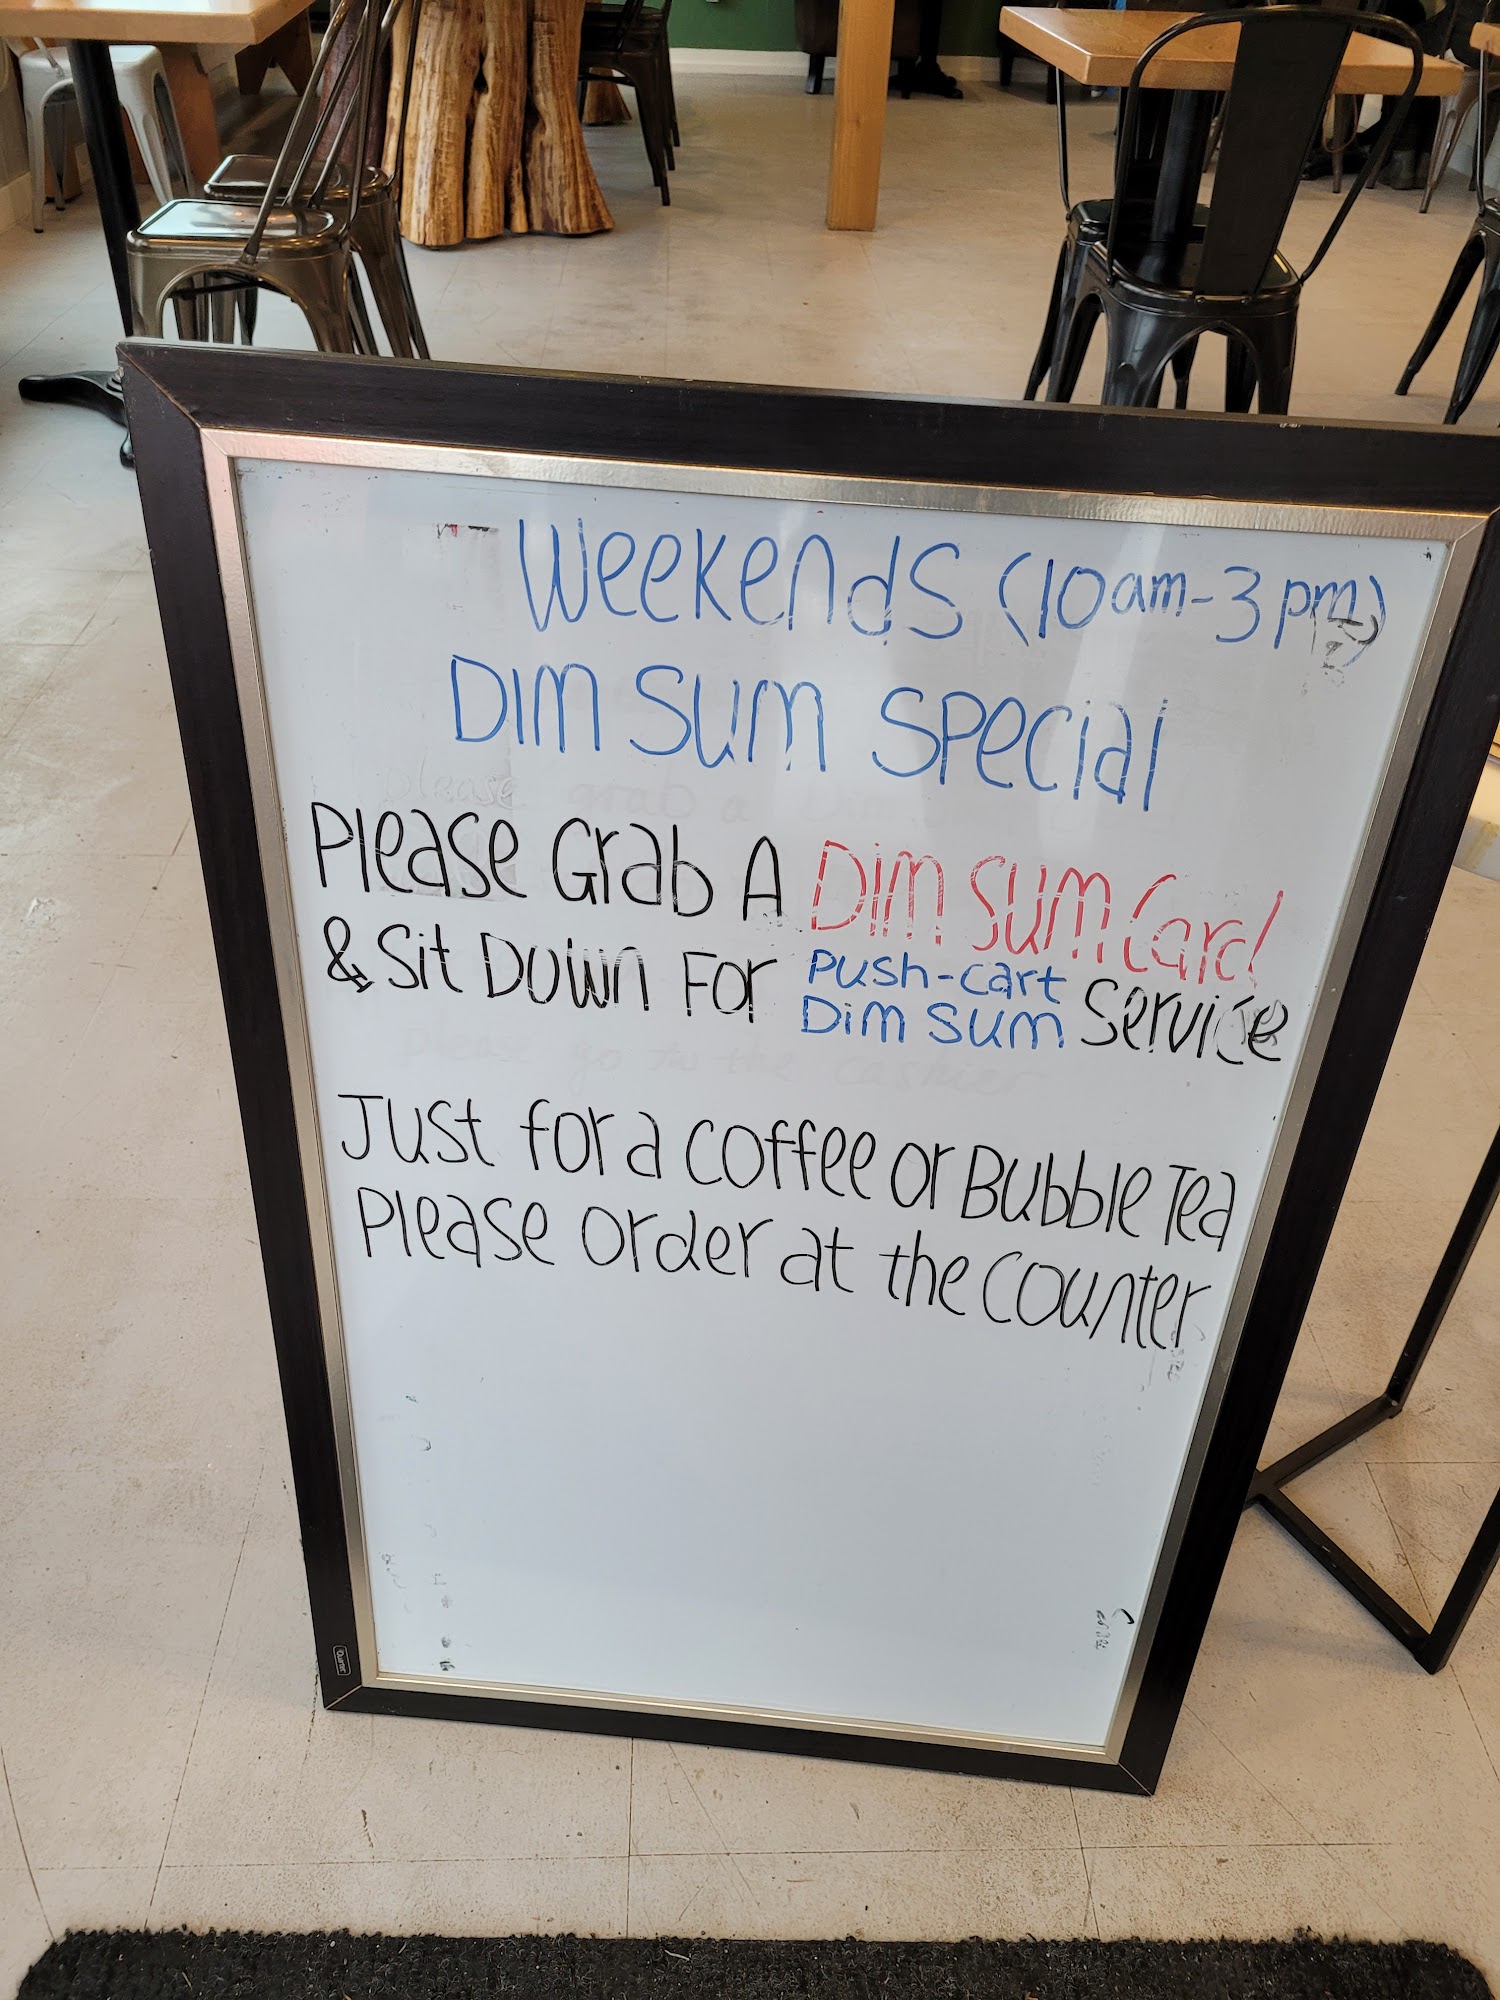 Weekends (10am-3pm)
Dim Sum Special
Please Grab A Dim Sum Card
& Sit Down For Push-cart Dim Sum Service
Just for a coffee or Bubble Tea
Please order at the counter